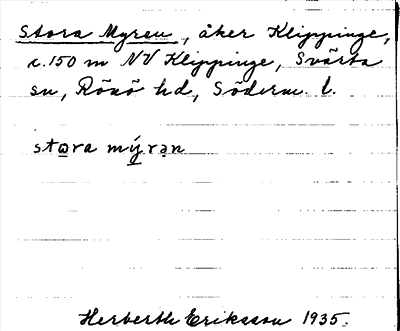 Stora Myren, åker Klippinge,
c. 150 m NV Klippinge, Svärta
sn, Rönö hd, Söderm. l.
stora mýrạn
Herberth Eriksson 1935.